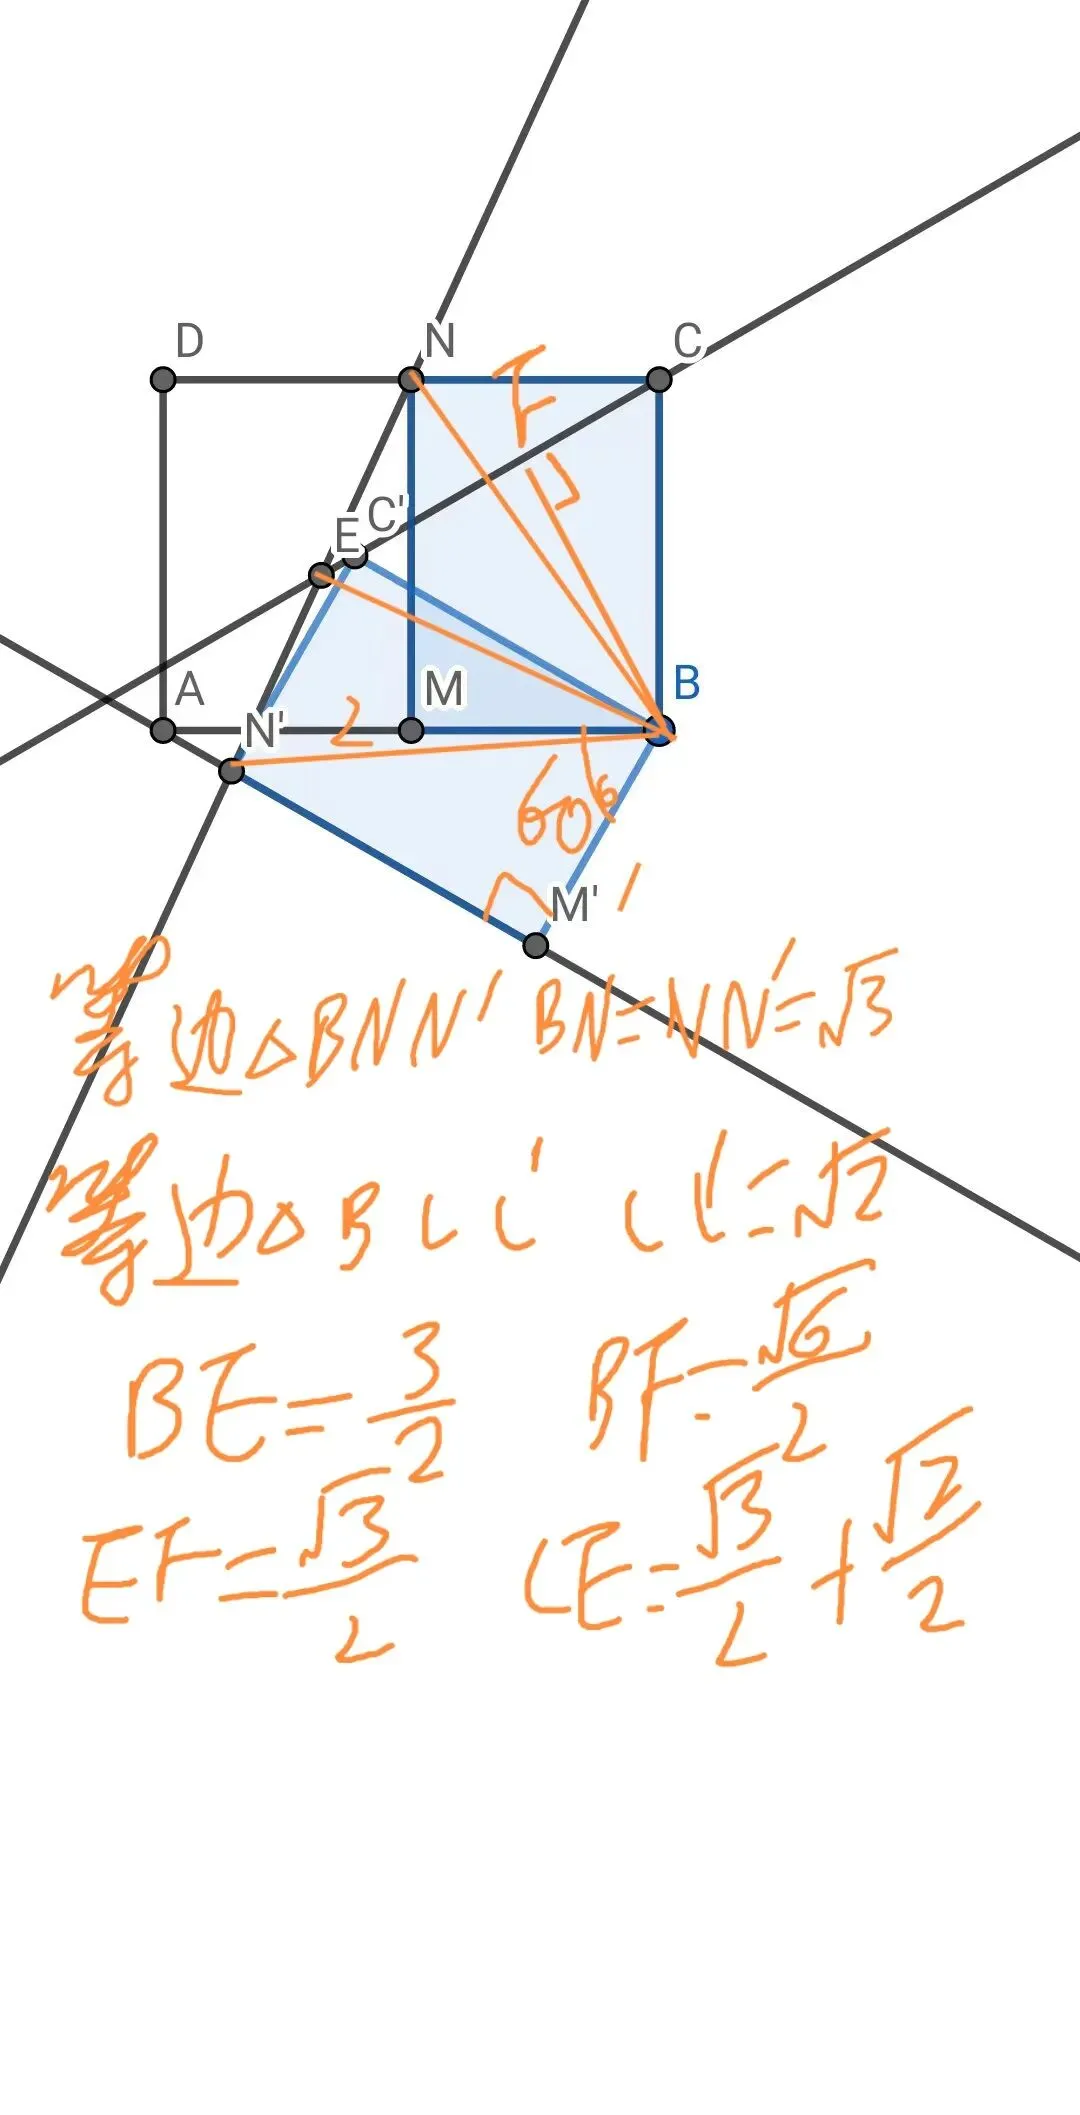 D N C
F
E C'
A M B
N' 2
60°
M'
等边△BNN' BN=NN'=√3
等边△BCC' CC'=√2
BE=3/2 BF=√6/2
EF=√3/2 CE=√3/2+√2/2